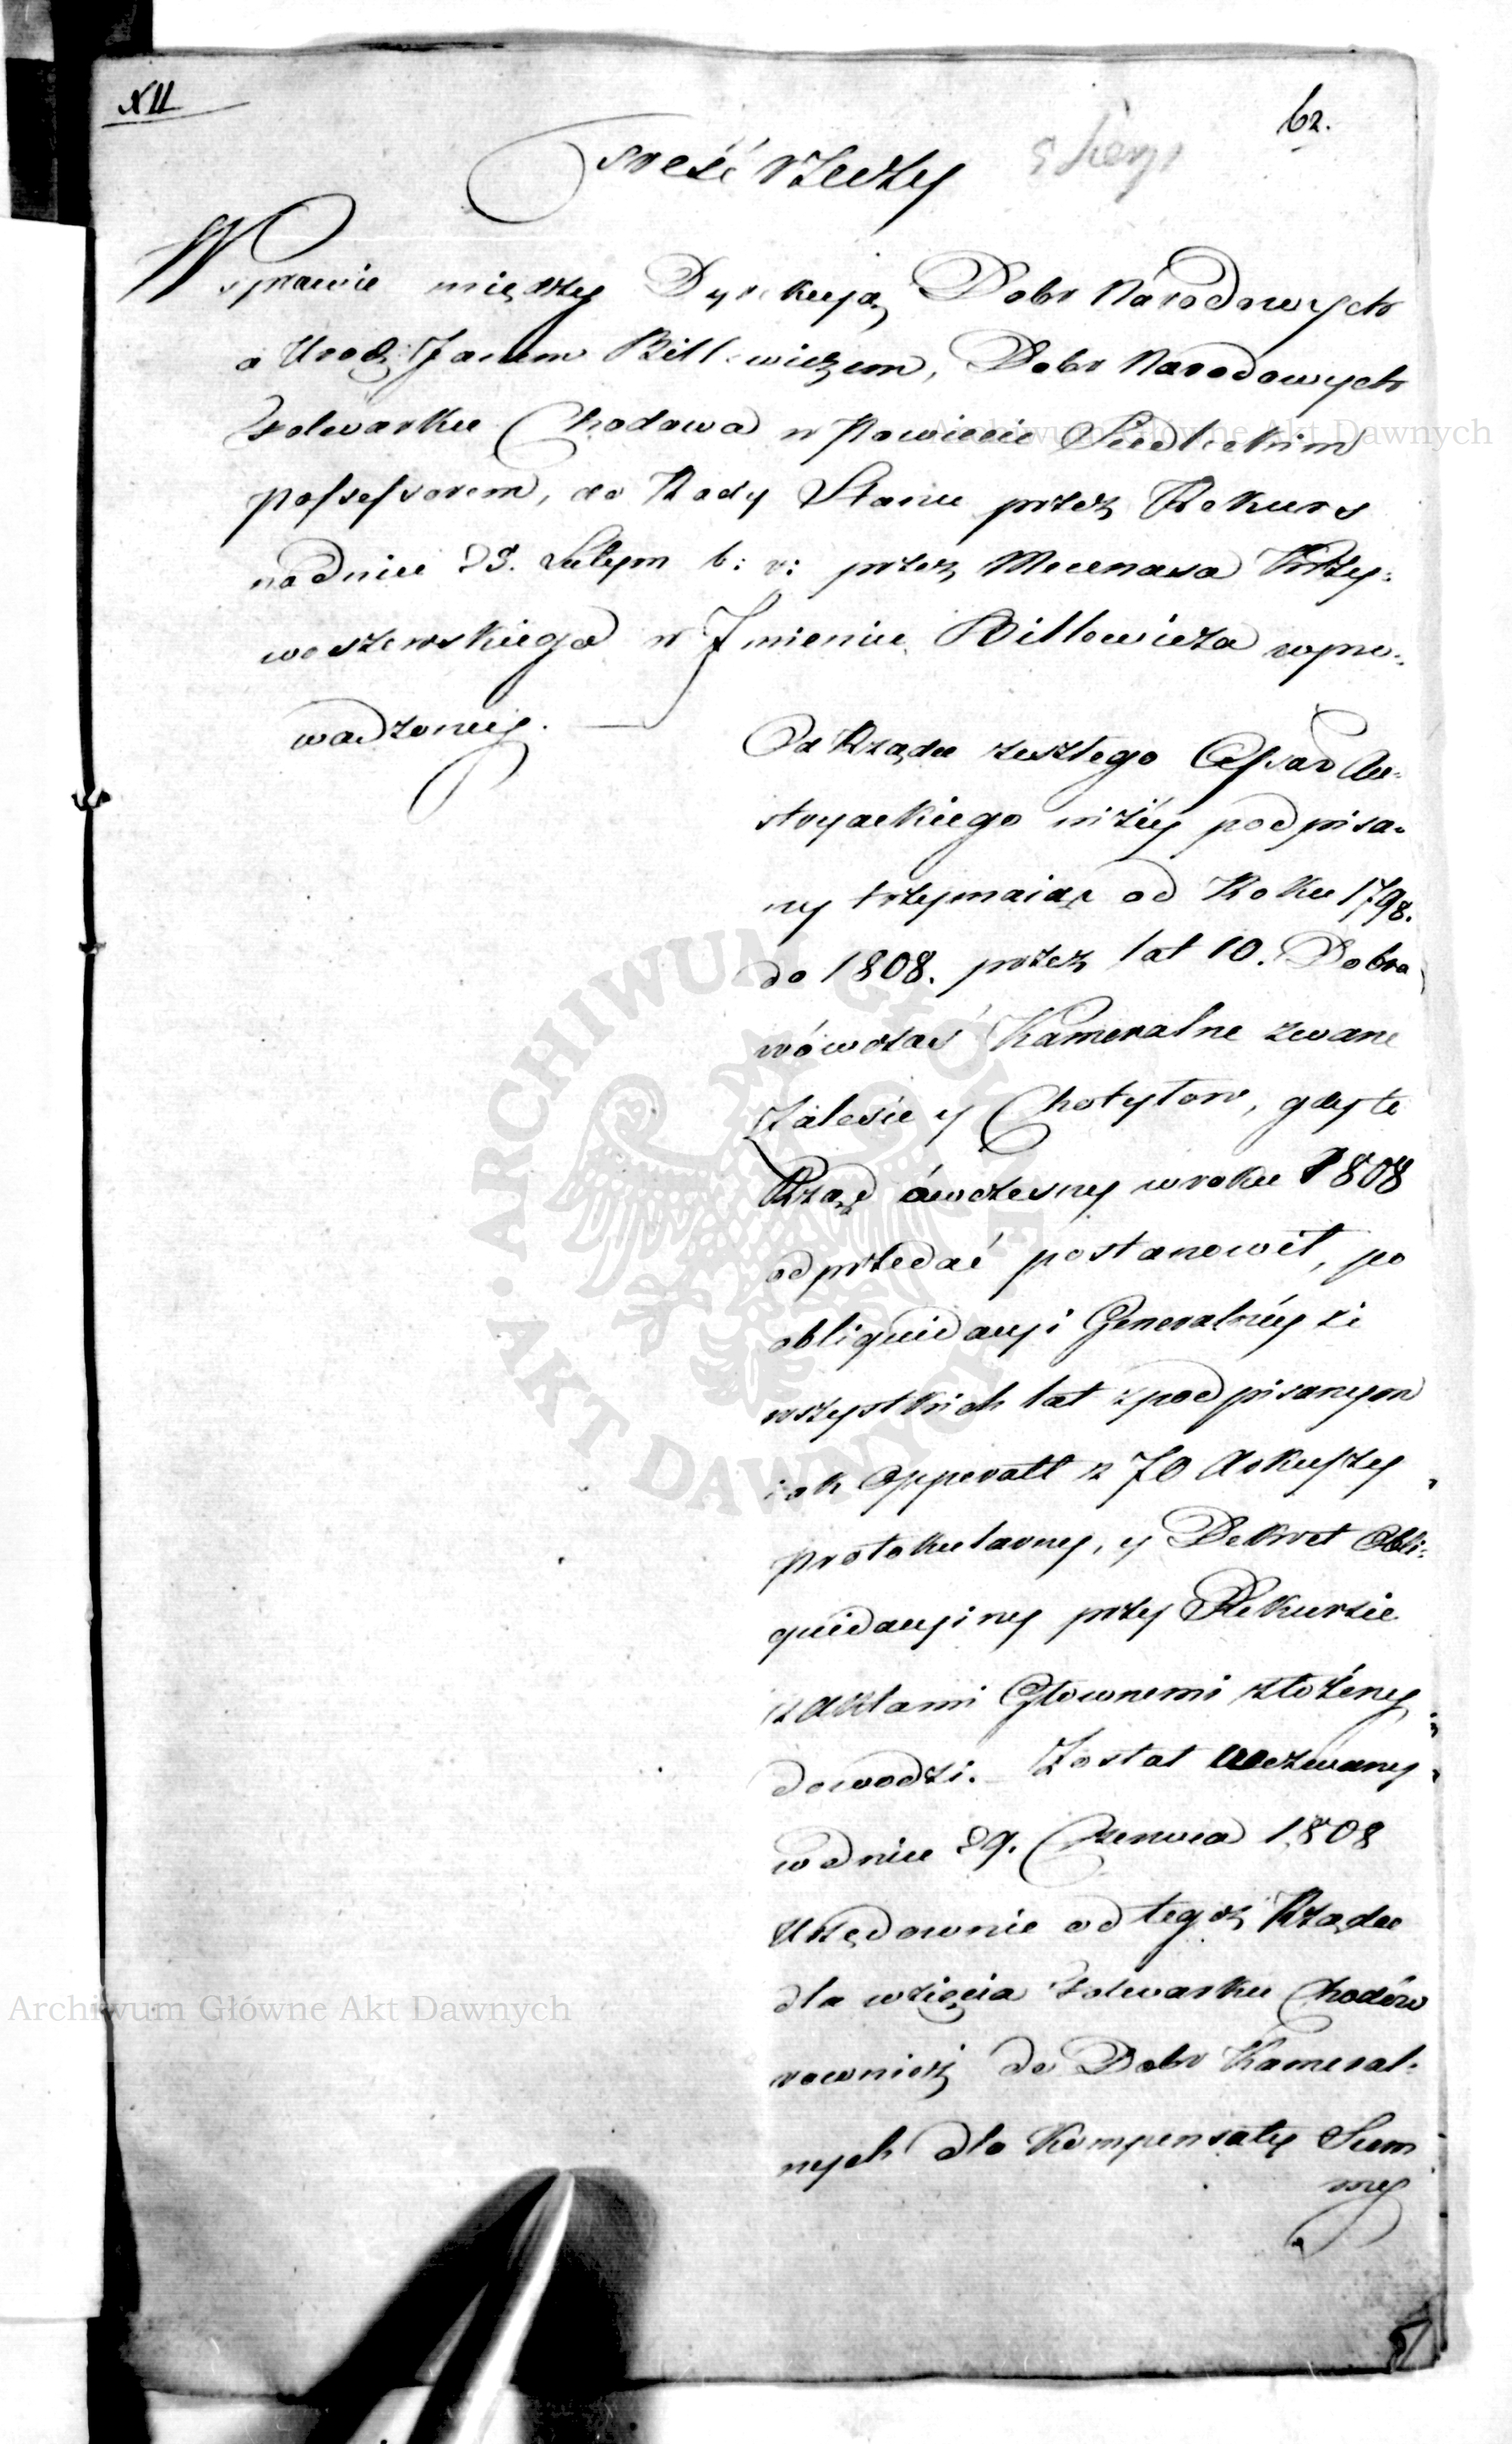 XII
62.
Treść rzeczy
W sprawie między Dyrekcyą Dobr Narodowych
a Urodz: Janem Billewiczem, Dobr Narodowych
Folwarku Chodowa w Powiecie Siedleckim
Possessorem, do Rady Stanu przez Rekurs
na dniu 23. Lutym b: r: przez Mecenasa Krzy-
woszewskiego w Jmieniu Billewicza wpro-
wadzoney.
Od Rządu zeszłego Cesar Au-
stryackiego niżey podpisa-
ny trzymaiąc od Roku 1798.
do 1808. przez lat 10. Dobra
wówczas Kameralne zwane
Zalesie y Chotyłow, gdy te
Rząd ówczesny w roku 1808
odprzedać postanowił, po
obliquidacyi Generalnéy ze
wszystkich lat z podpisanym
iak Opperatt z 70 Arkuszy
protokularny, y Dekret Obli-
quidacyiny przy Rekursie
z Aktami Głownemi złożény
dowodzi. Został Wezwany
w dniu 29. Czerwca 1808
Urzędownie od tegoż Rządu
dla wzięcia Folwarku Chodów
rowniesz do Dobr Kameral-
nych dla Kompensaty Sum
my
Archiwum Główne Akt Dawnych
Archiwum Główne Akt Dawnych
ARCHIWUM GŁÓWNE AKT DAWNYCH